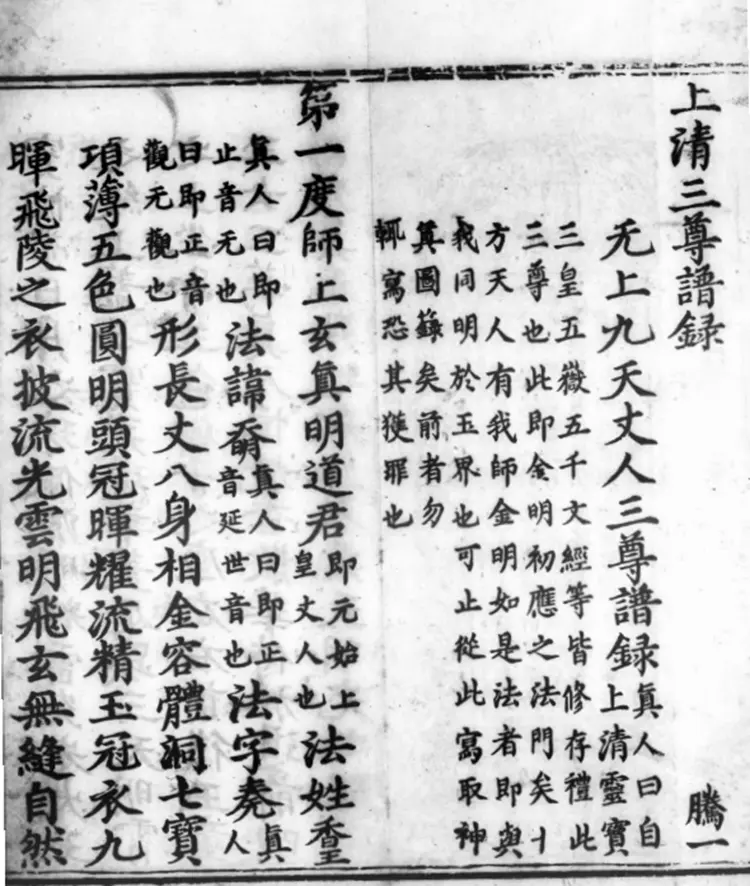 上清三尊譜録 騰一
无上九天丈人三尊譜録眞人曰自上清靈寶
三皇五嶽五千文經等皆修存禮此
三尊也此即金明初應之法門矣十
方天人有我師金明如是法者即與
我同明於玉界也可止從此寫取神
眞圖籙矣前者勿
輒寫恐其獲罪也
第一度師上玄眞明道君即元始上皇丈人也法姓
眞人曰即止音无也法諱眞人曰即正音延世音也法字堯眞人
曰即正音觀元觀也形長丈八身相金容體洞七寶
項薄五色圓明頭冠暉耀流精玉冠衣九
暉飛陵之衣披流光雲明飛玄無縫自然